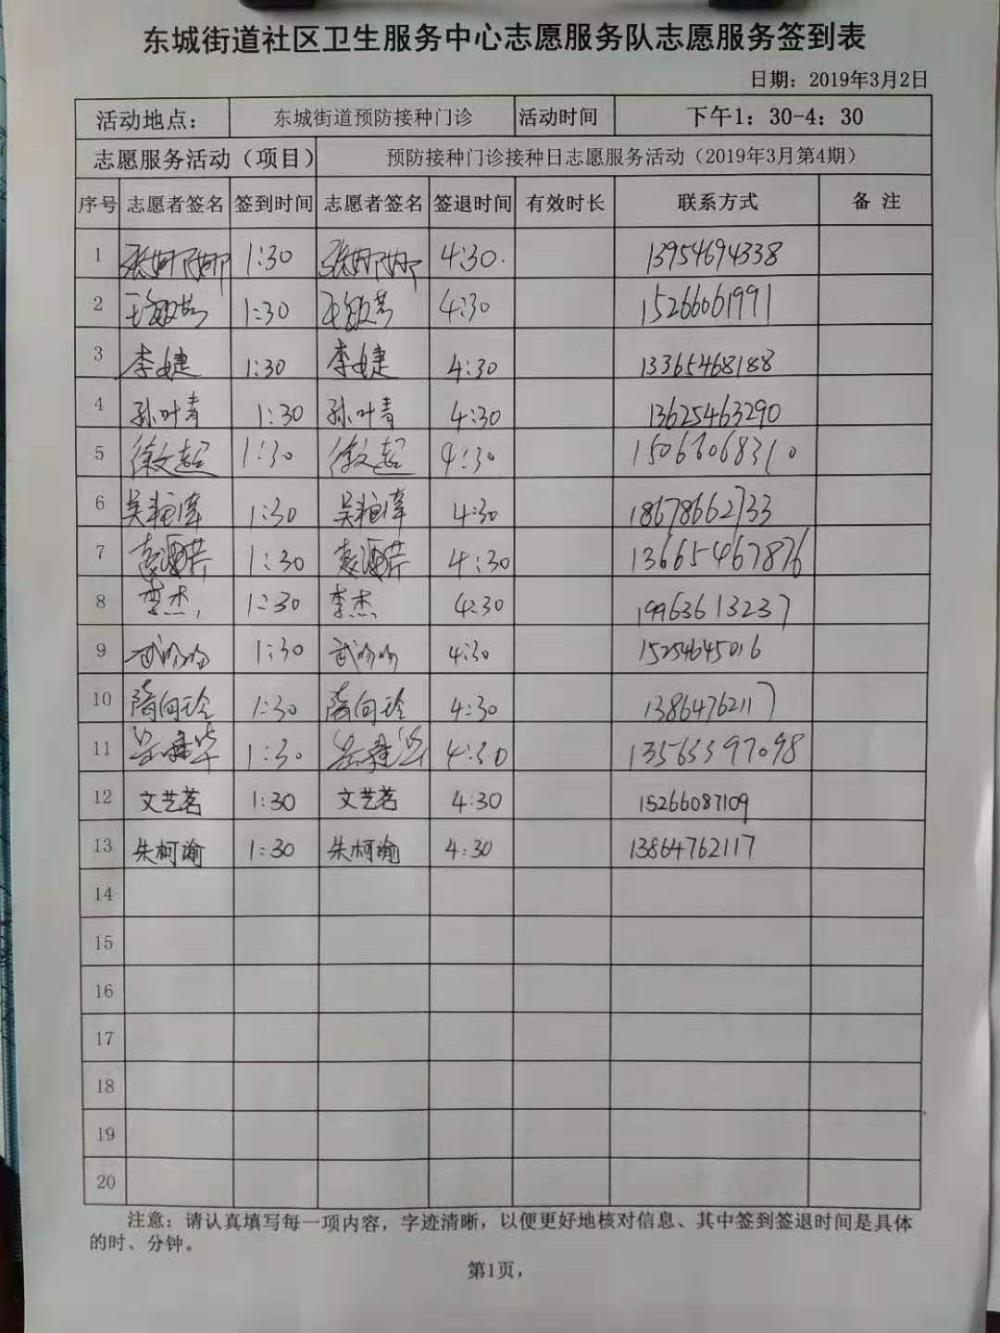 东城街道社区卫生服务中心志愿服务队志愿服务签到表
日期：2019年3月2日
活动地点： 东城街道预防接种门诊 活动时间 下午1：30-4：30
志愿服务活动（项目） 预防接种门诊接种日志愿服务活动（2019年3月第4期）
序号 志愿者签名 签到时间 志愿者签名 签退时间 有效时长 联系方式 备 注
1 张娜娜 1:30 张娜娜 4:30. 13954694338
2 1:30 4:30 15266061991
3 李婕 1:30 李婕 4:30 13365468188
4 孙叶青 1:30 孙叶青 4:30 13625463290
5 徐文超 1:30 徐文超 4:30 15066068310
6 1:30 4:30 18678662733
7 1:30 4:30 13665467876
8 李杰, 1:30 李杰 4:30 19963613237
9 1:30 4:30 15254645016
10 隋向玲 1:30 隋向玲 4:30 13864762117
11 1:30 4:30 13563397098
12 文艺茗 1:30 文艺茗 4:30 15266087109
13 朱柯瑜 1:30 朱柯瑜 4:30 13864762117
14
15
16
17
18
19
20
注意：请认真填写每一项内容，字迹清晰，以便更好地核对信息、其中签到签退时间是具体
的时、分钟。
第1页，